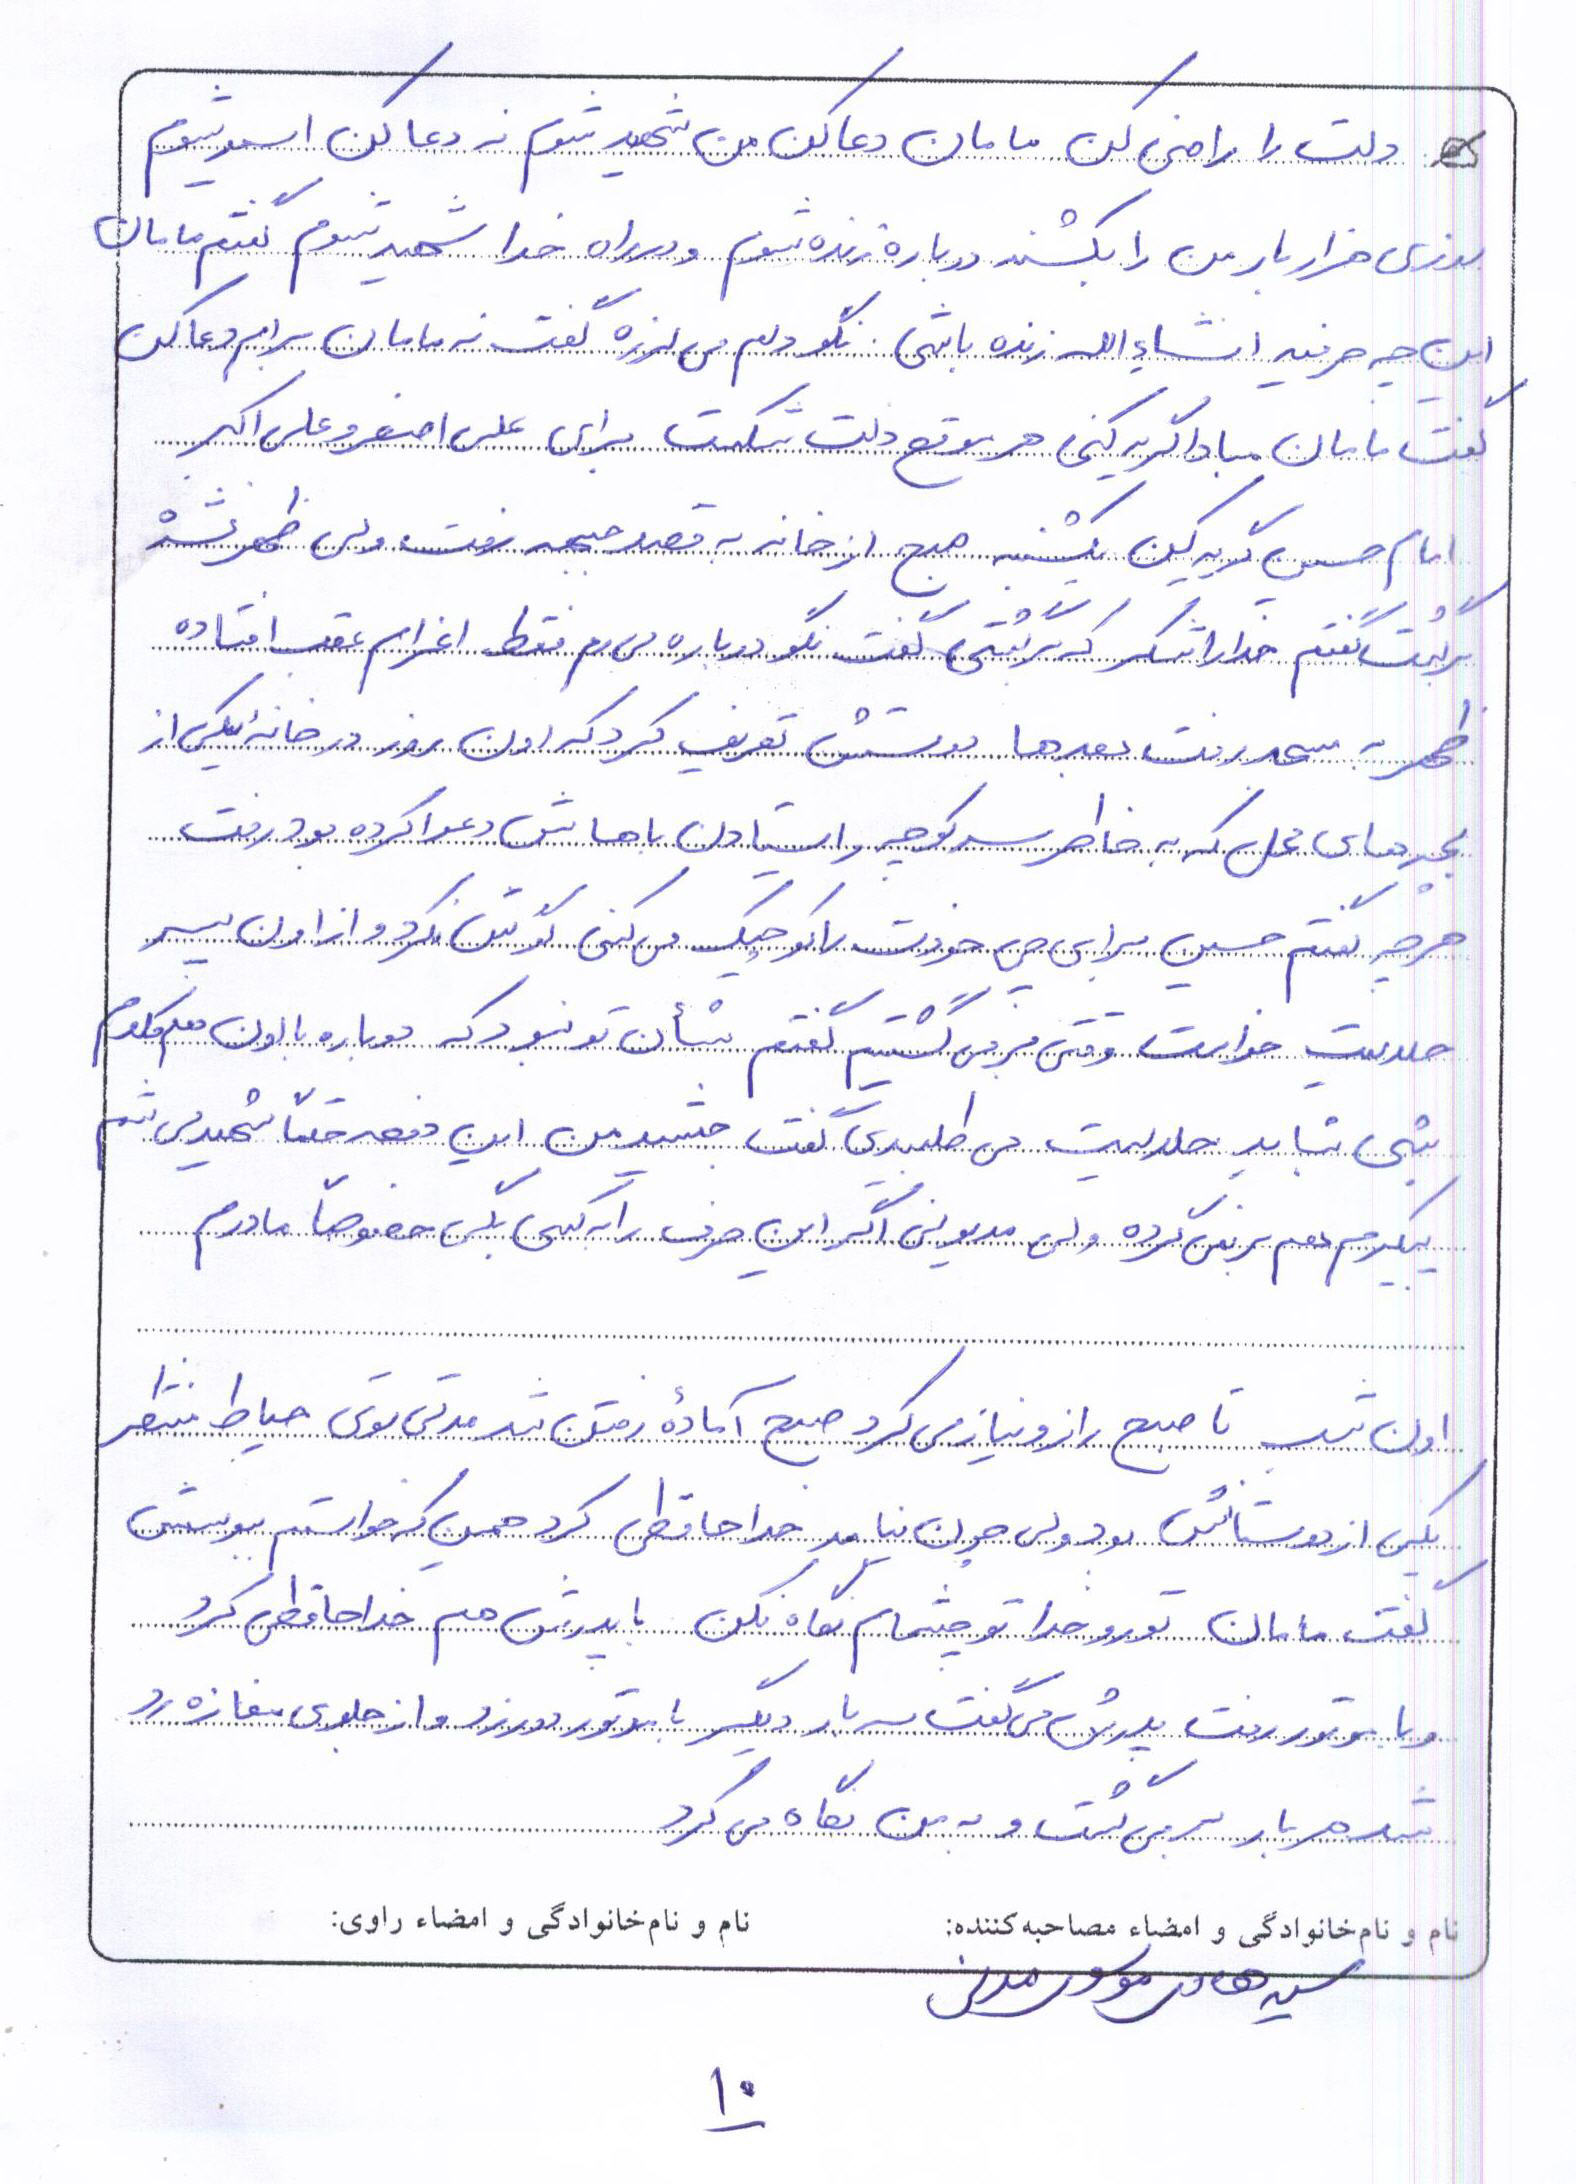 دلت را راضی کن مامان دعا کن من شهید شوم نه دعا کن اسیر شوم
روزی هزار بار من را بکشند دوباره زنده شوم و در راه خدا شهید شوم گفتم مامان
این چه حرفیه انشاءالله زنده باشی. نگو دلم می لرزه گفت نه مامان برایم دعا کن
گفت مامان مبادا گریه کنی هر موقع دلت شکست برای علی اصغر و علی اکبر
امام حسین گریه کن یکشنبه صبح از خانه به قصد جبهه رفت ولی ظهر نشده
برگشت گفتم خدا را شکر که برگشتی گفت نگو دوباره می رم فقط اعزام عقب افتاده
ظهر به مسجد رفت بعدها دوستش تعریف کرد که اون روز در خانهٔ یکی از
بچه های محل که به خاطر سر کوچه وایستادن باهاش دعوا کرده بود رفت
هر چه گفتم حسین برای چی خودت را کوچیک می کنی گوش نکرد و از اون پسر
حلالیت خواست وقتی بر می گشتیم گفتم شأن تو نبود که دوباره با اون هم کلام
بشی شاید حلالیت می طلبیدی گفت جمشید من این دفعه حتماً شهید می شم
پیکرم هم بر نمی گرده ولی مدیونی اگر این حرف را به کسی بگی خصوصاً مادرم
اون شب تا صبح راز و نیاز می کرد صبح آمادهٔ رفتن شد مدتی توی حیاط منتظر
یکی از دوستانش بود ولی چون نیامد خداحافظی کرد همین که خواستم ببوسمش
گفت مامان تو رو خدا تو چشمام نگاه نکن با پدرش هم خداحافظی کرد
و با موتور رفت پدرش می گفت سه بار دیگر با موتور دور زد و از جلوی مغازه رد
شد هر بار بر می گشت و به من نگاه می کرد
نام و نام‌خانوادگی و امضاء مصاحبه‌کننده: نام و نام‌خانوادگی و امضاء راوی:
سید هادی موسوی مدنی
۱۰